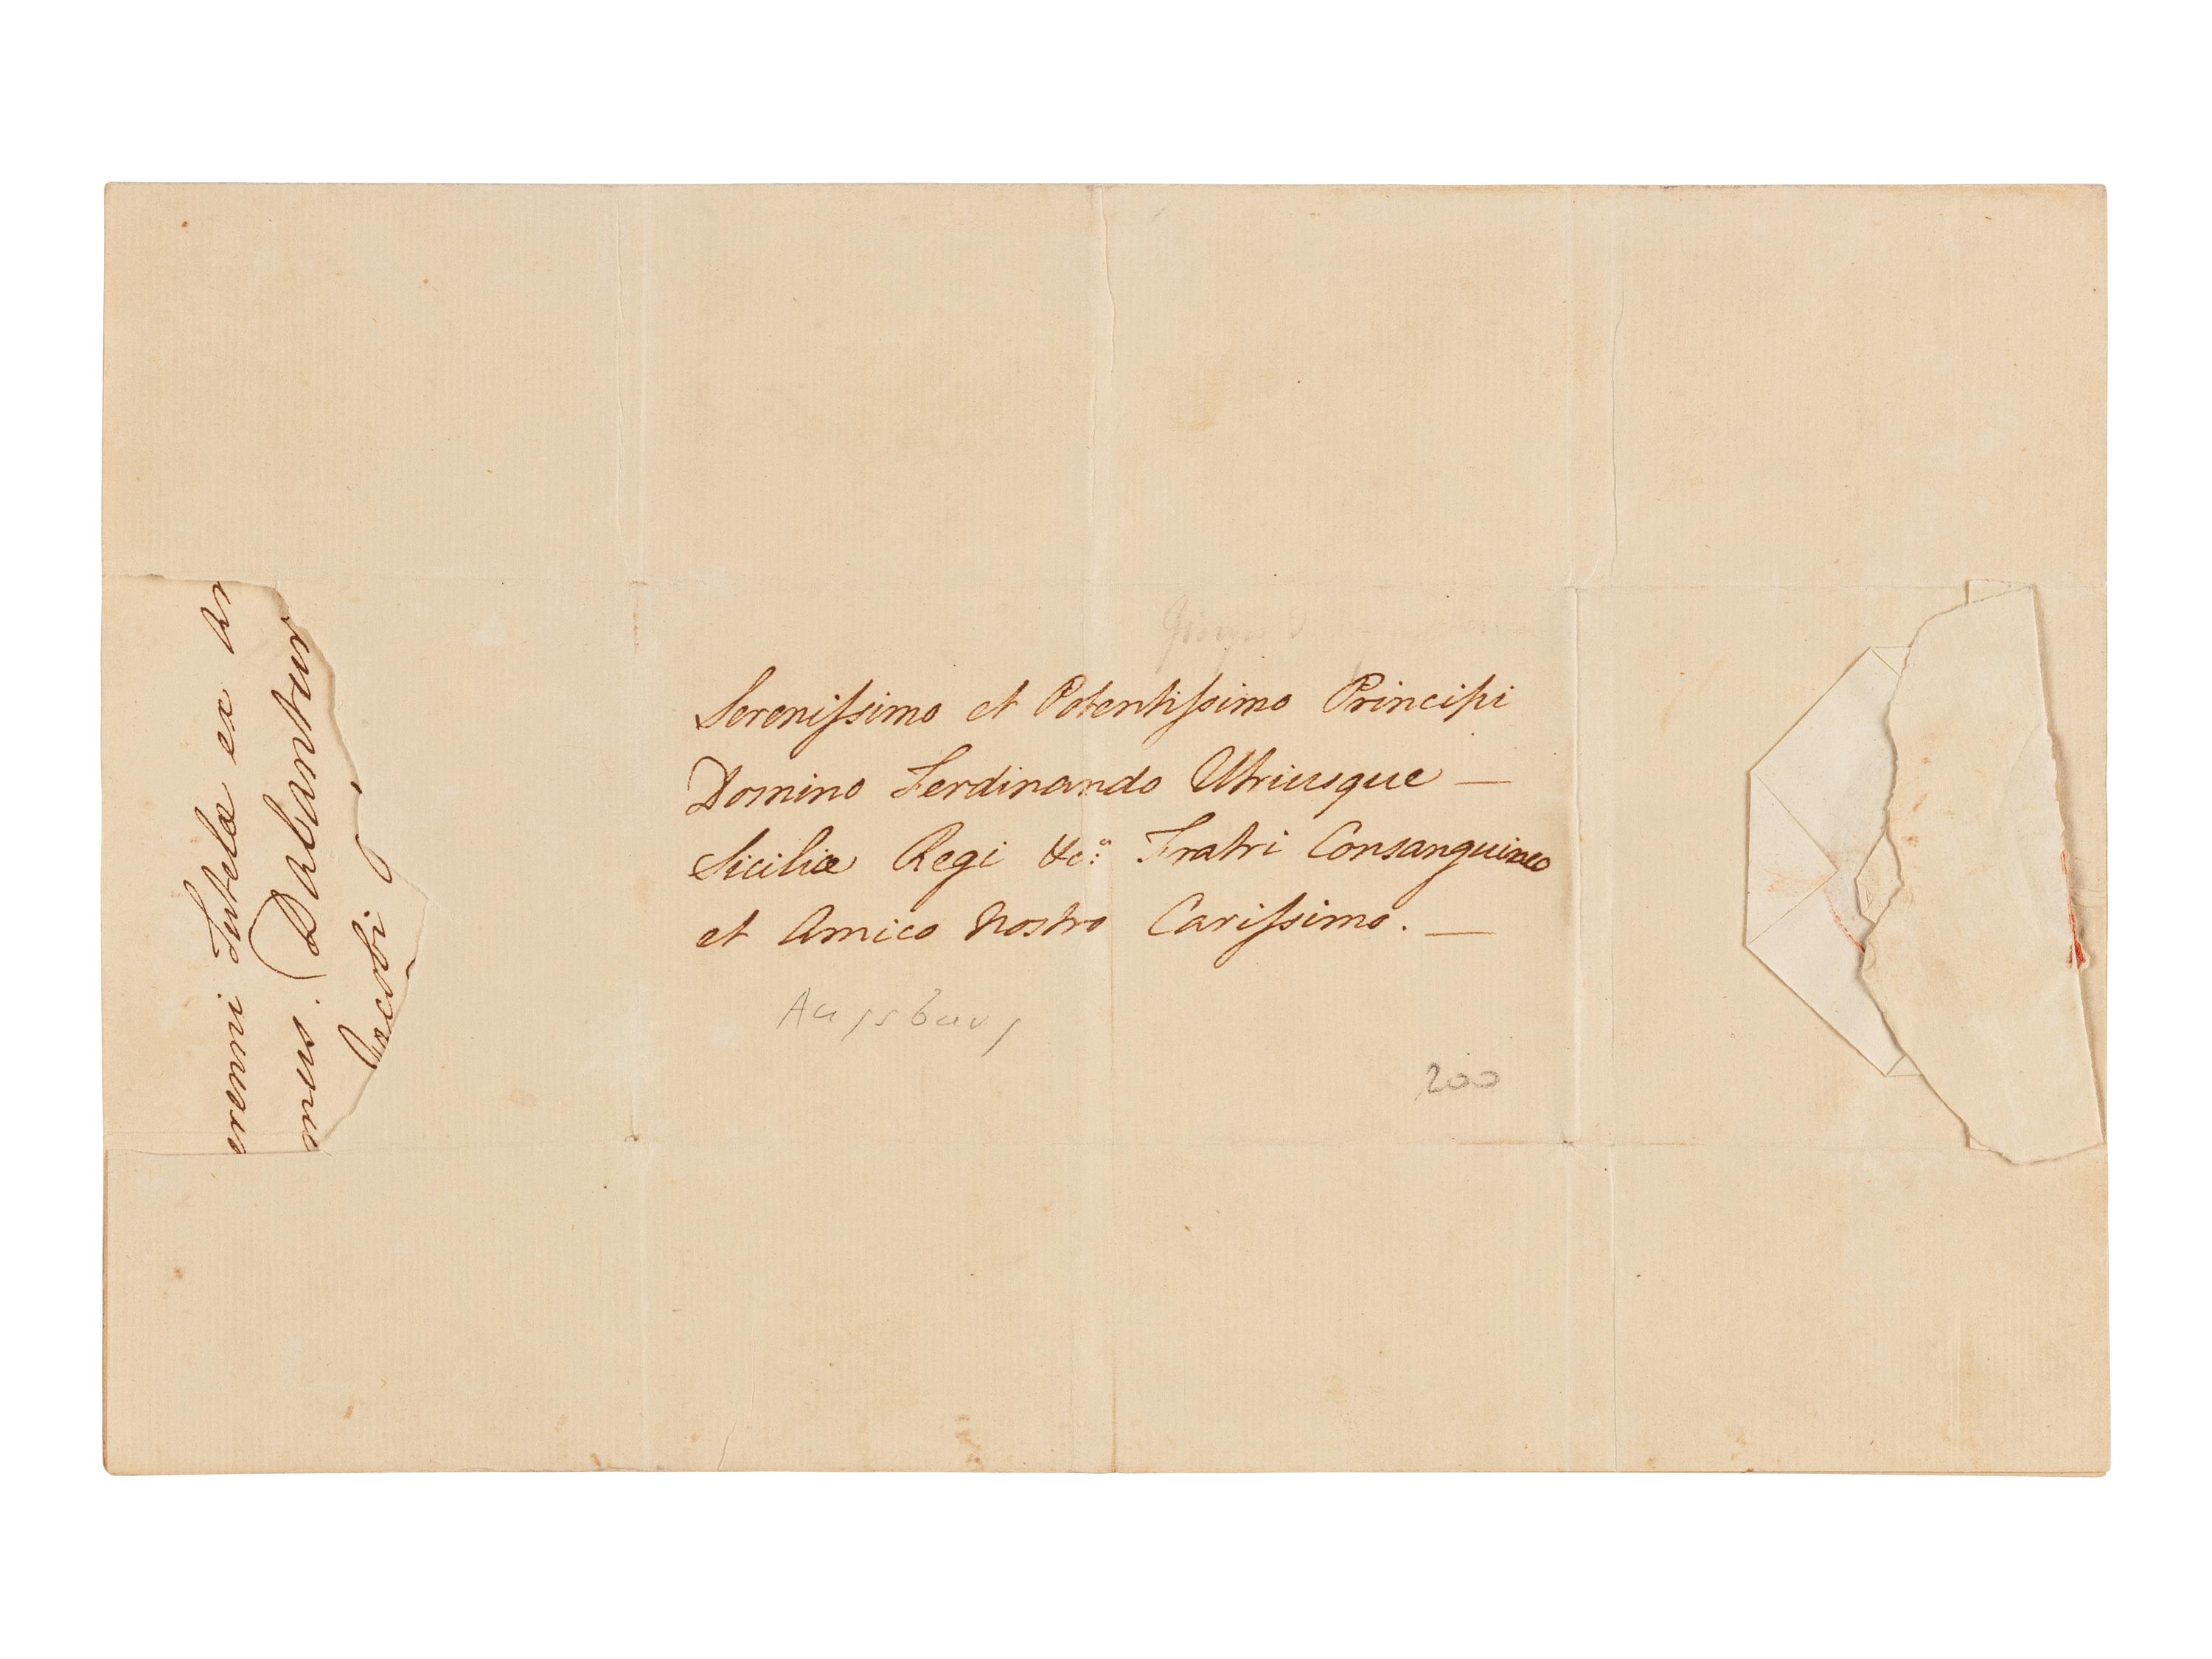 Sereniſsimo et Potentiſsimo Principi
Domino Ferdinando Utriusque —
Siciliæ Regi &c.ª Fratri Consanguineo
et Amico Nostro Cariſsimo. —
Augsburg
200
erenni Tutela ex
mus. Dabantur
Jacobi